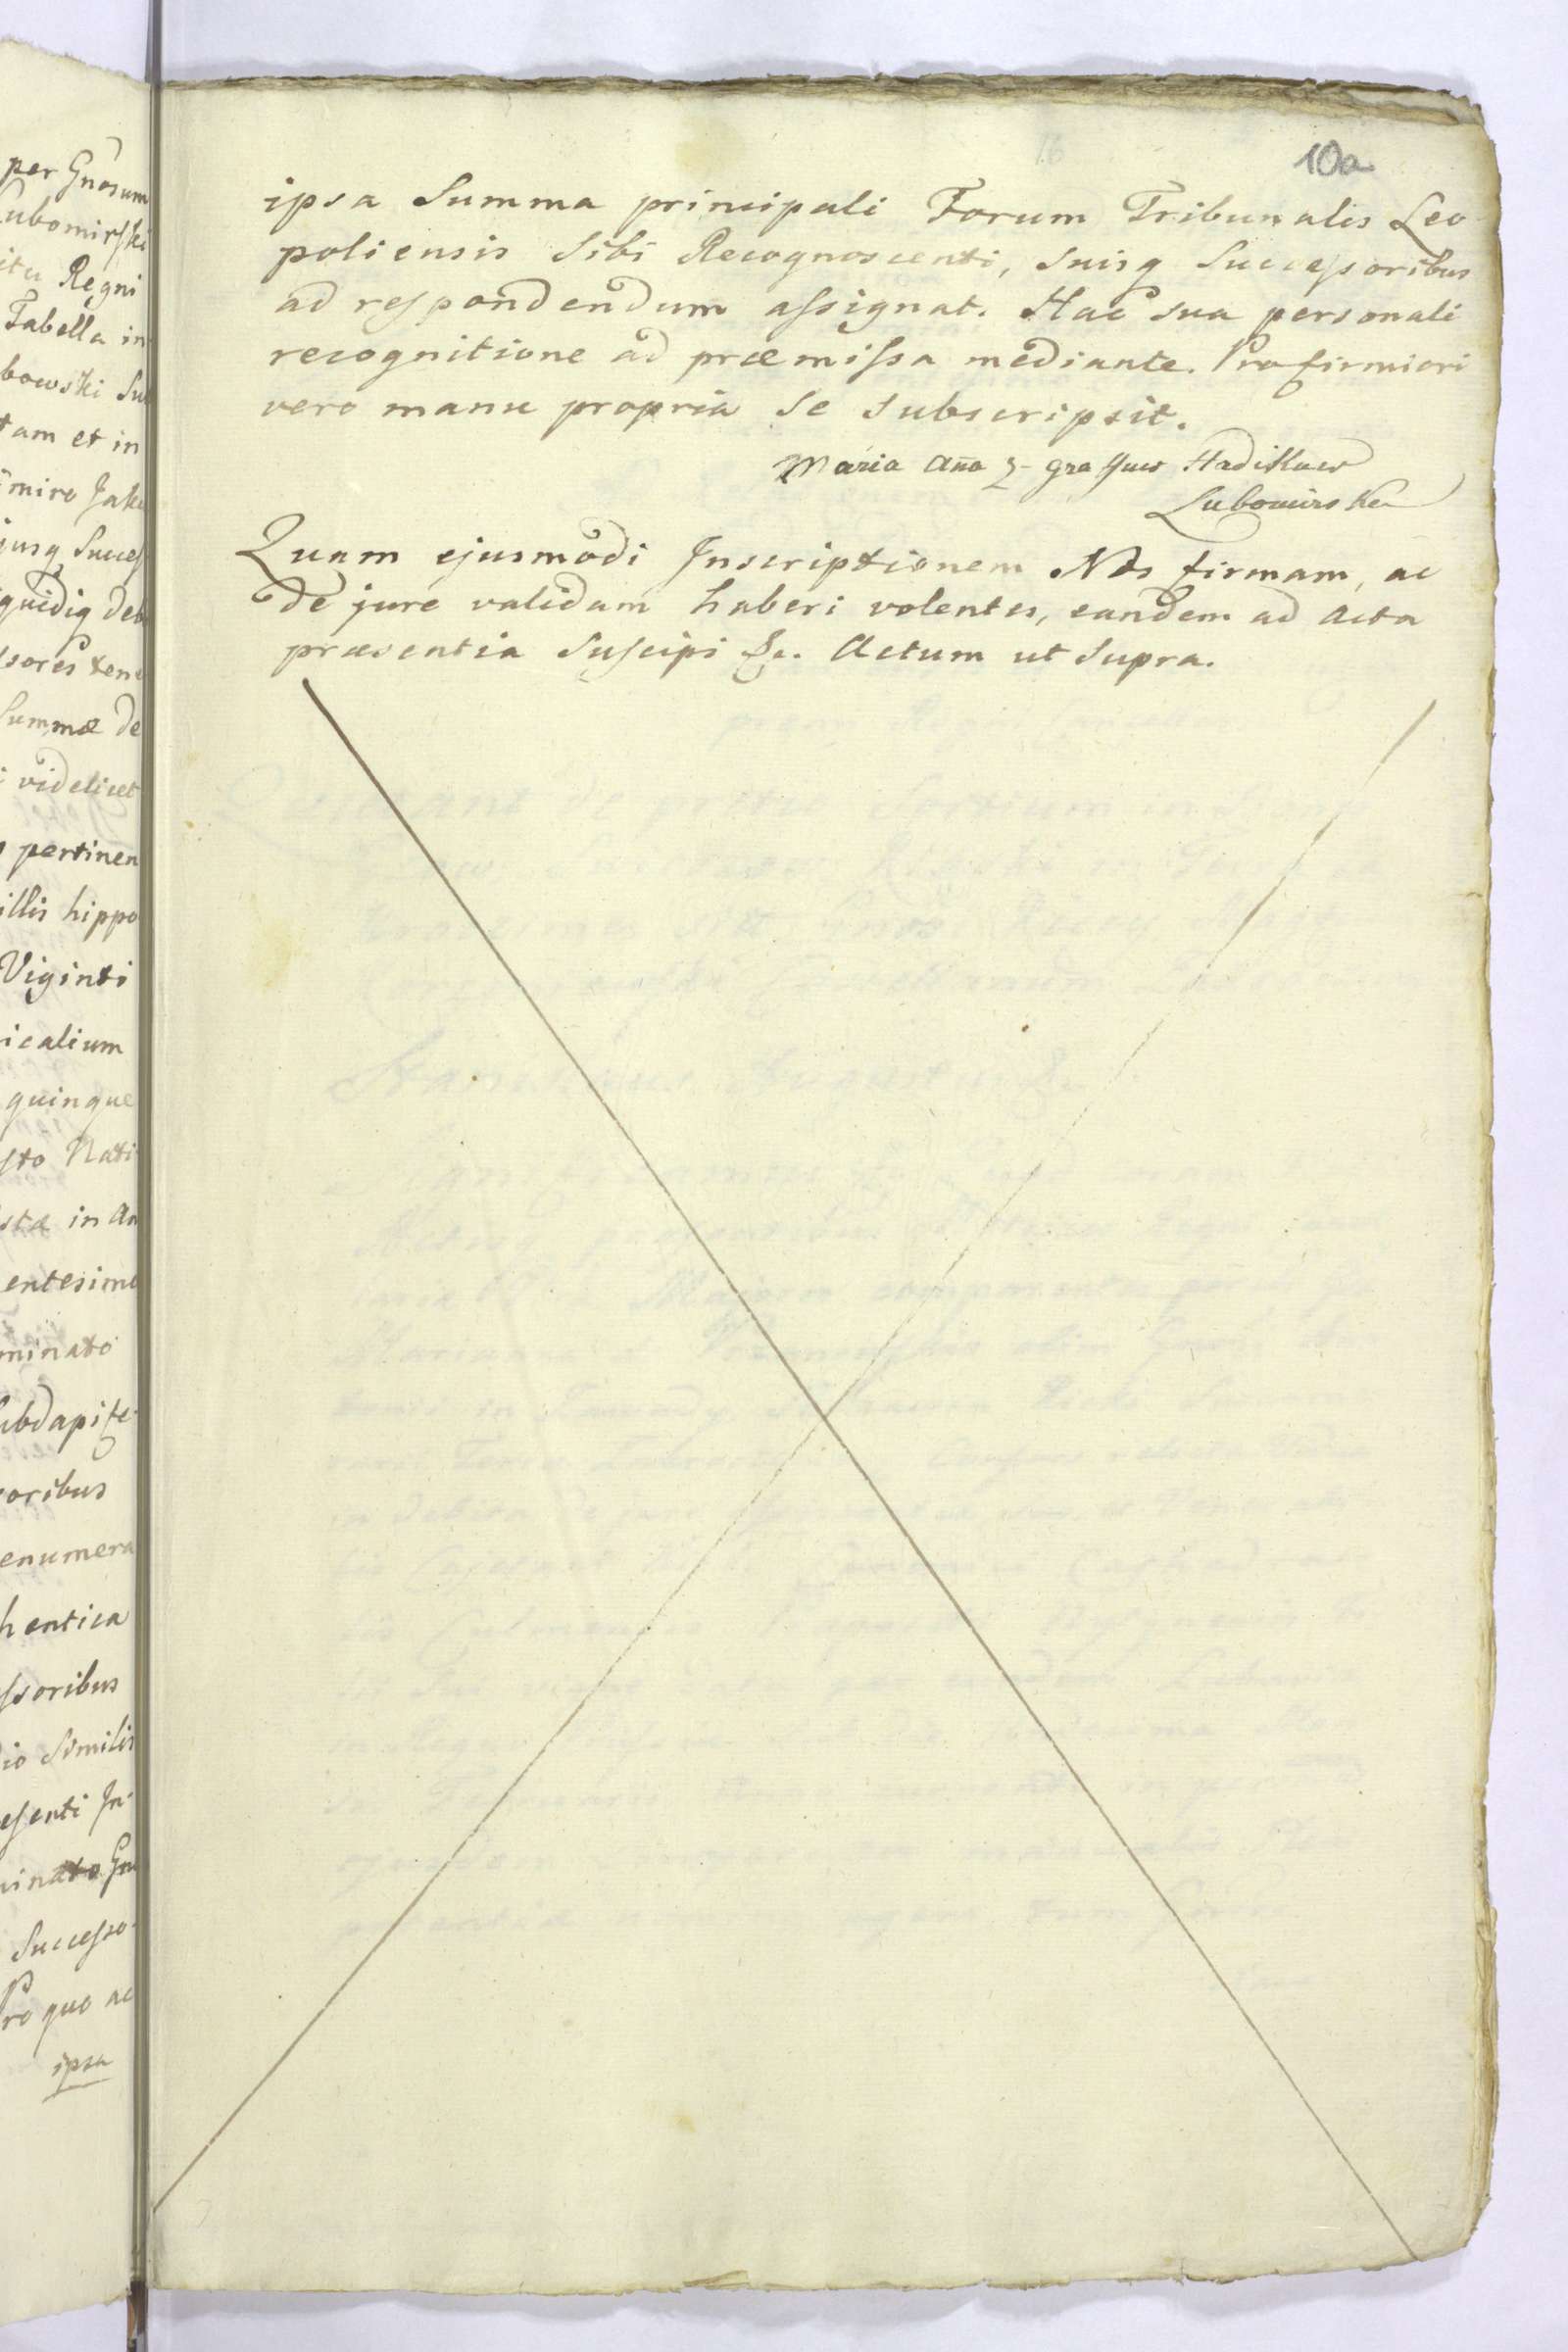 per Gnosum
Lubomirski
itu Regni
Tabella in
bowski Su
tam et in
imiro Jak
jusq Succes
quidiq deb
ssores tene
Summæ de
i videlicet
pertinen
illis hippo
Viginti
icalium
quinque
sto Nati
stæ in An
entesimo
minato
ubdapife
oribus
enumera
hentica
ssoribus
io Similis
esenti In
inato Gn
Successo
Pro quo ac
ipsa
10a
ipsa Summa principali Forum Tribunalis Leo
poliensis Sibi Recognoscenti, Suisq Successoribus
ad respondendum assignat. Hac sua personali
recognitione ad præmissa mediante. Pro firmiori
vero manu propria se subscripsit.
Maria Aña z Hadikow
Lubomirska
Quam ejusmodi Inscriptionem Nos firmam, ac
de jure validam haberi volentes, eandem ad Acta
præsentia Suscipi &c. Actum ut Supra.